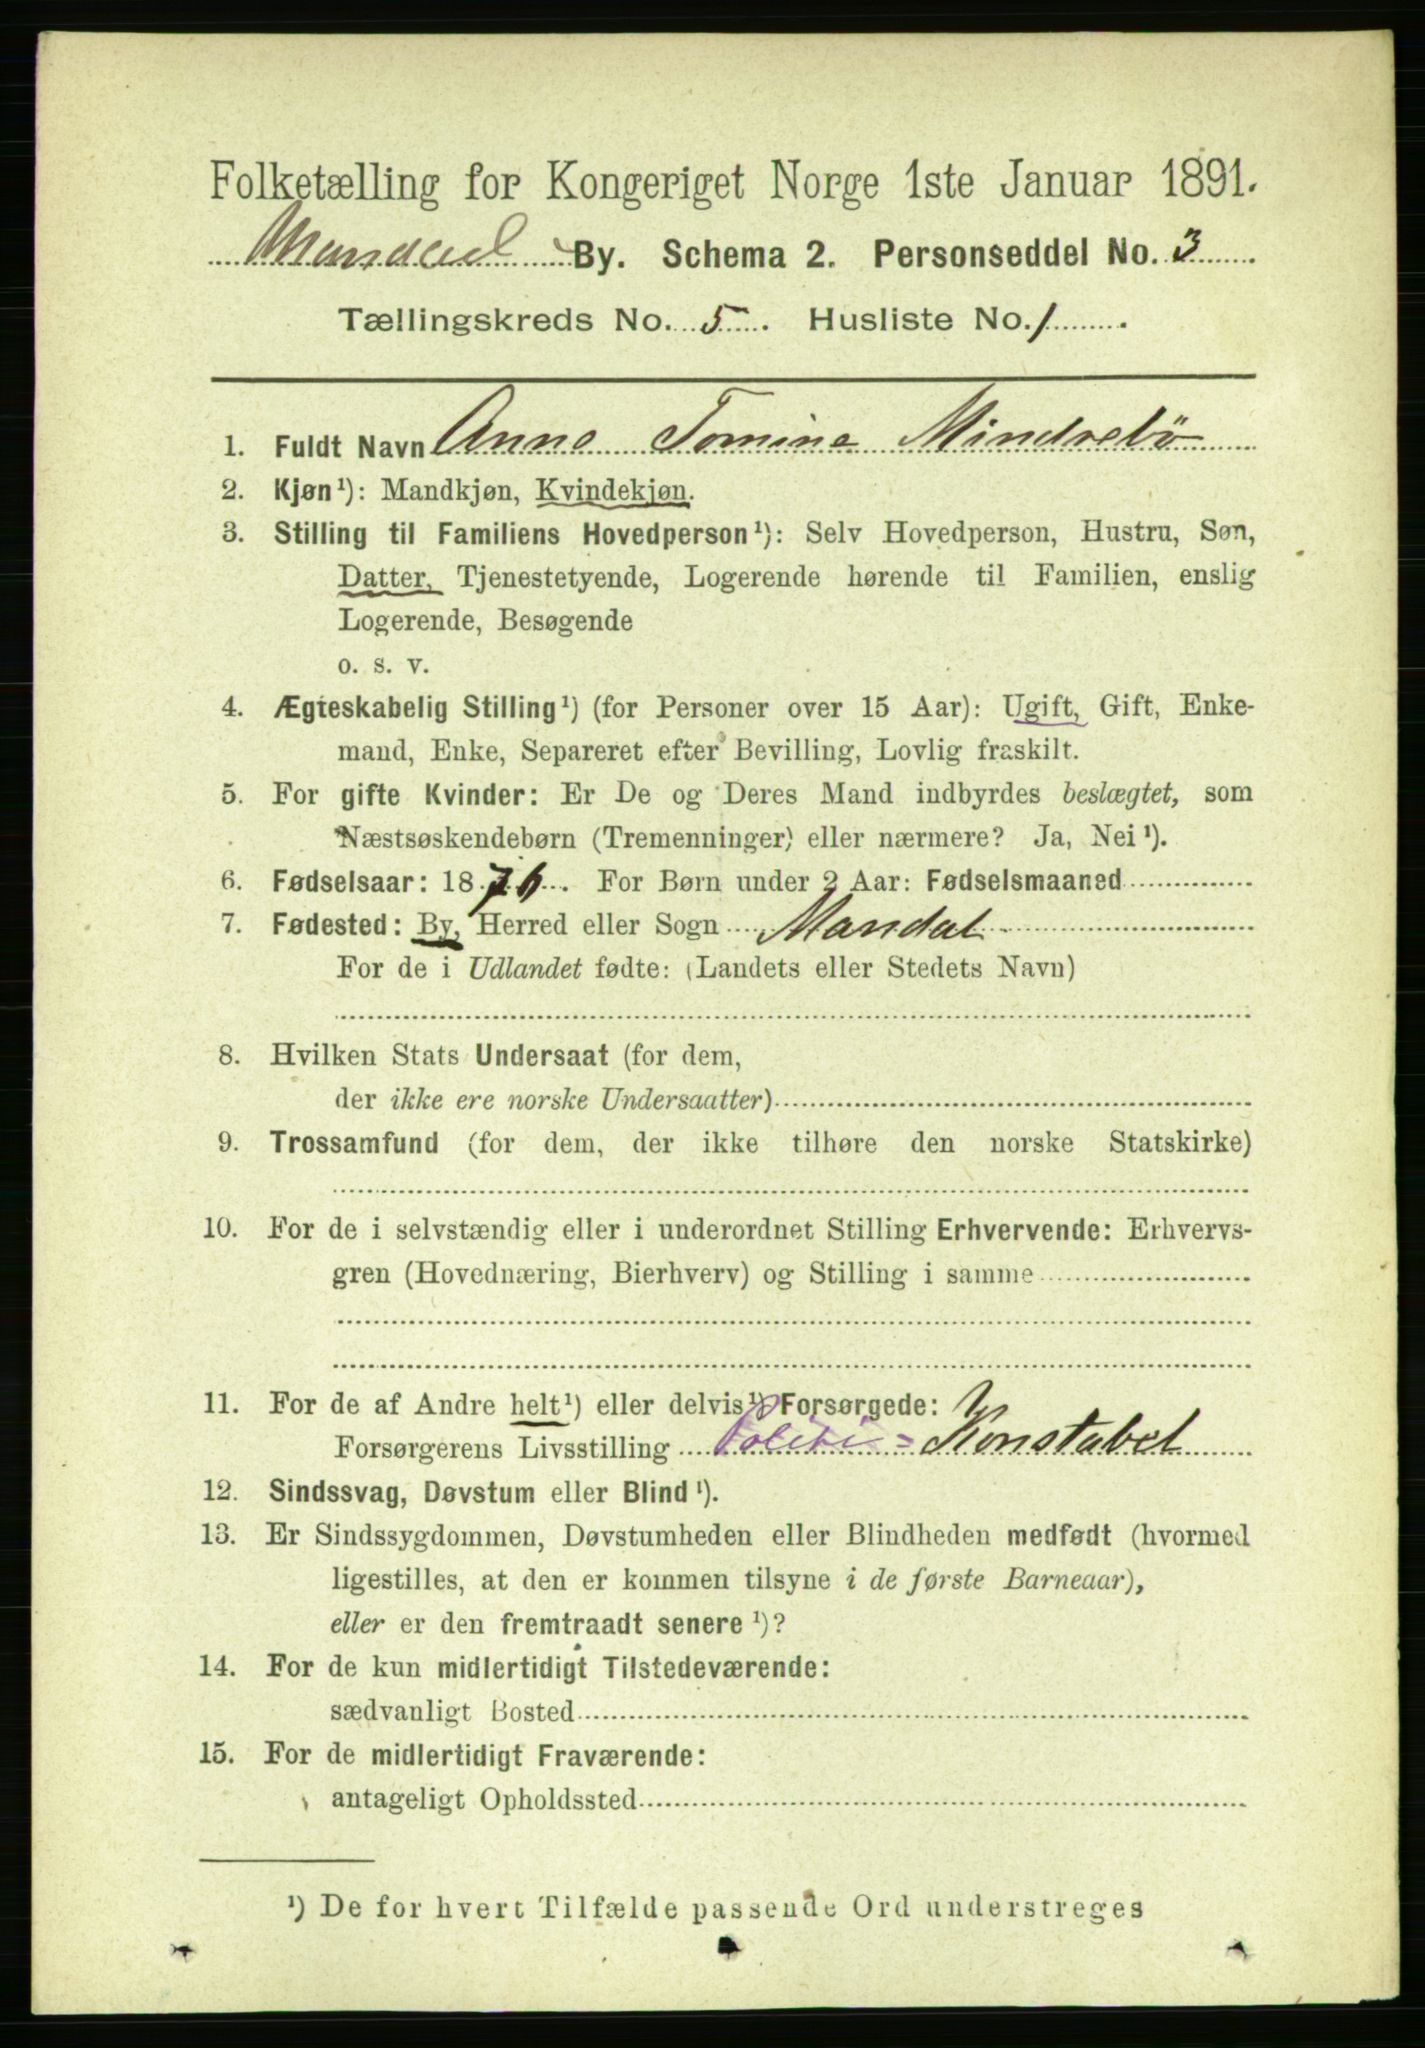 Folketælling for Kongeriget Norge 1ste Januar 1891.
Mandal By. Schema 2. Personseddel No. 3
Tællingskreds No. 5. Husliste No. 1.
1. Fuldt Navn Anne Tomine Mindrebö
2. Kjøn¹): Mandkjøn, Kvindekjøn.
3. Stilling til Familiens Hovedperson¹): Selv Hovedperson, Hustru, Søn,
Datter, Tjenestetyende, Logerende hørende til Familien, enslig
Logerende, Besøgende
o. s. v.
4. Ægteskabelig Stilling¹) (for Personer over 15 Aar): Ugift, Gift, Enke-
mand, Enke, Separeret efter Bevilling, Lovlig fraskilt.
5. For gifte Kvinder: Er De og Deres Mand indbyrdes beslægtet, som
Næstsøskendebørn (Tremenninger) eller nærmere? Ja, Nei¹).
6. Fødselsaar: 1876. For Børn under 2 Aar: Fødselsmaaned
7. Fødested: By, Herred eller Sogn Mandal
For de i Udlandet fødte: (Landets eller Stedets Navn)
8. Hvilken Stats Undersaat (for dem,
der ikke ere norske Undersaatter)
9. Trossamfund (for dem, der ikke tilhøre den norske Statskirke)
10. For de i selvstændig eller i underordnet Stilling Erhvervende: Erhvervs-
gren (Hovednæring, Bierhverv) og Stilling i samme
11. For de af Andre helt¹) eller delvis¹) Forsørgede:
Forsørgerens Livsstilling Politi=Konstabel
12. Sindssvag, Døvstum eller Blind¹).
13. Er Sindssygdommen, Døvstumheden eller Blindheden medfødt (hvormed
ligestilles, at den er kommen tilsyne i de første Barneaar),
eller er den fremtraadt senere¹)?
14. For de kun midlertidigt Tilstedeværende:
sædvanligt Bosted
15. For de midlertidigt Fraværende:
antageligt Opholdssted
¹) De for hvert Tilfælde passende Ord understreges